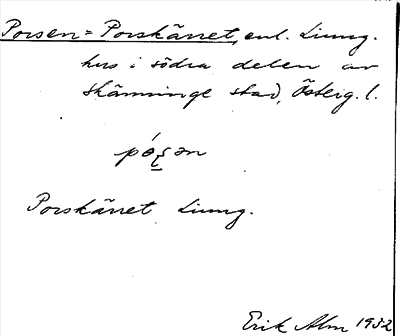 Porsen = Porskärret, enl. Ljung.
hus i södra delen av
Skänninge stad, Österg. l.
Porskärret Ljung.
Erik Alm 1932